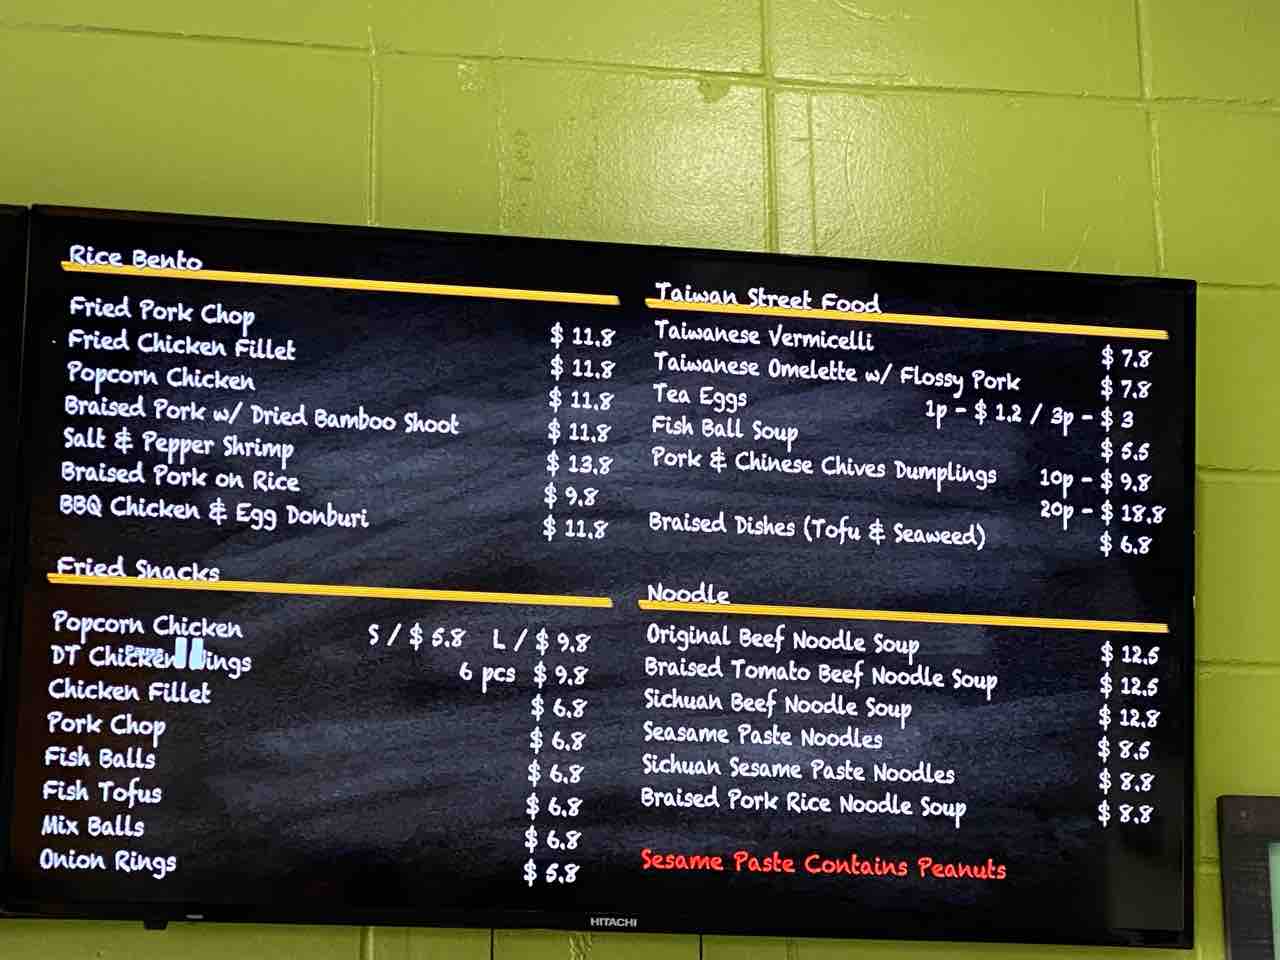 Rice Bento
Fried Pork Chop $ 11.8
Fried Chicken Fillet $ 11.8
Popcorn Chicken $ 11.8
Braised Pork w/ Dried Bamboo Shoot $ 11.8
Salt & Pepper Shrimp $ 13.8
Braised Pork on Rice $ 9.8
BBQ Chicken & Egg Donburi $ 11.8
Fried Snacks
Popcorn Chicken S / $ 5.8 L / $ 9.8
DT Chicken Wings 6 pcs $ 9.8
Chicken Fillet $ 6.8
Pork Chop $ 6.8
Fish Balls $ 6.8
Fish Tofus $ 6.8
Mix Balls $ 6.8
Onion Rings $ 5.8
Taiwan Street Food
Taiwanese Vermicelli $ 7.8
Taiwanese Omelette w/ Flossy Pork $ 7.8
Tea Eggs 1p - $ 1.2 / 3p - $ 3
Fish Ball Soup $ 5.5
Pork & Chinese Chives Dumplings 10p - $ 9.8
20p - $ 18.8
Braised Dishes (Tofu & Seaweed) $ 6.8
Noodle
Original Beef Noodle Soup $ 12.5
Braised Tomato Beef Noodle Soup $ 12.5
Sichuan Beef Noodle Soup $ 12.8
Seasame Paste Noodles $ 8.5
Sichuan Sesame Paste Noodles $ 8.8
Braised Pork Rice Noodle Soup $ 8.8
Sesame Paste Contains Peanuts
HITACHI